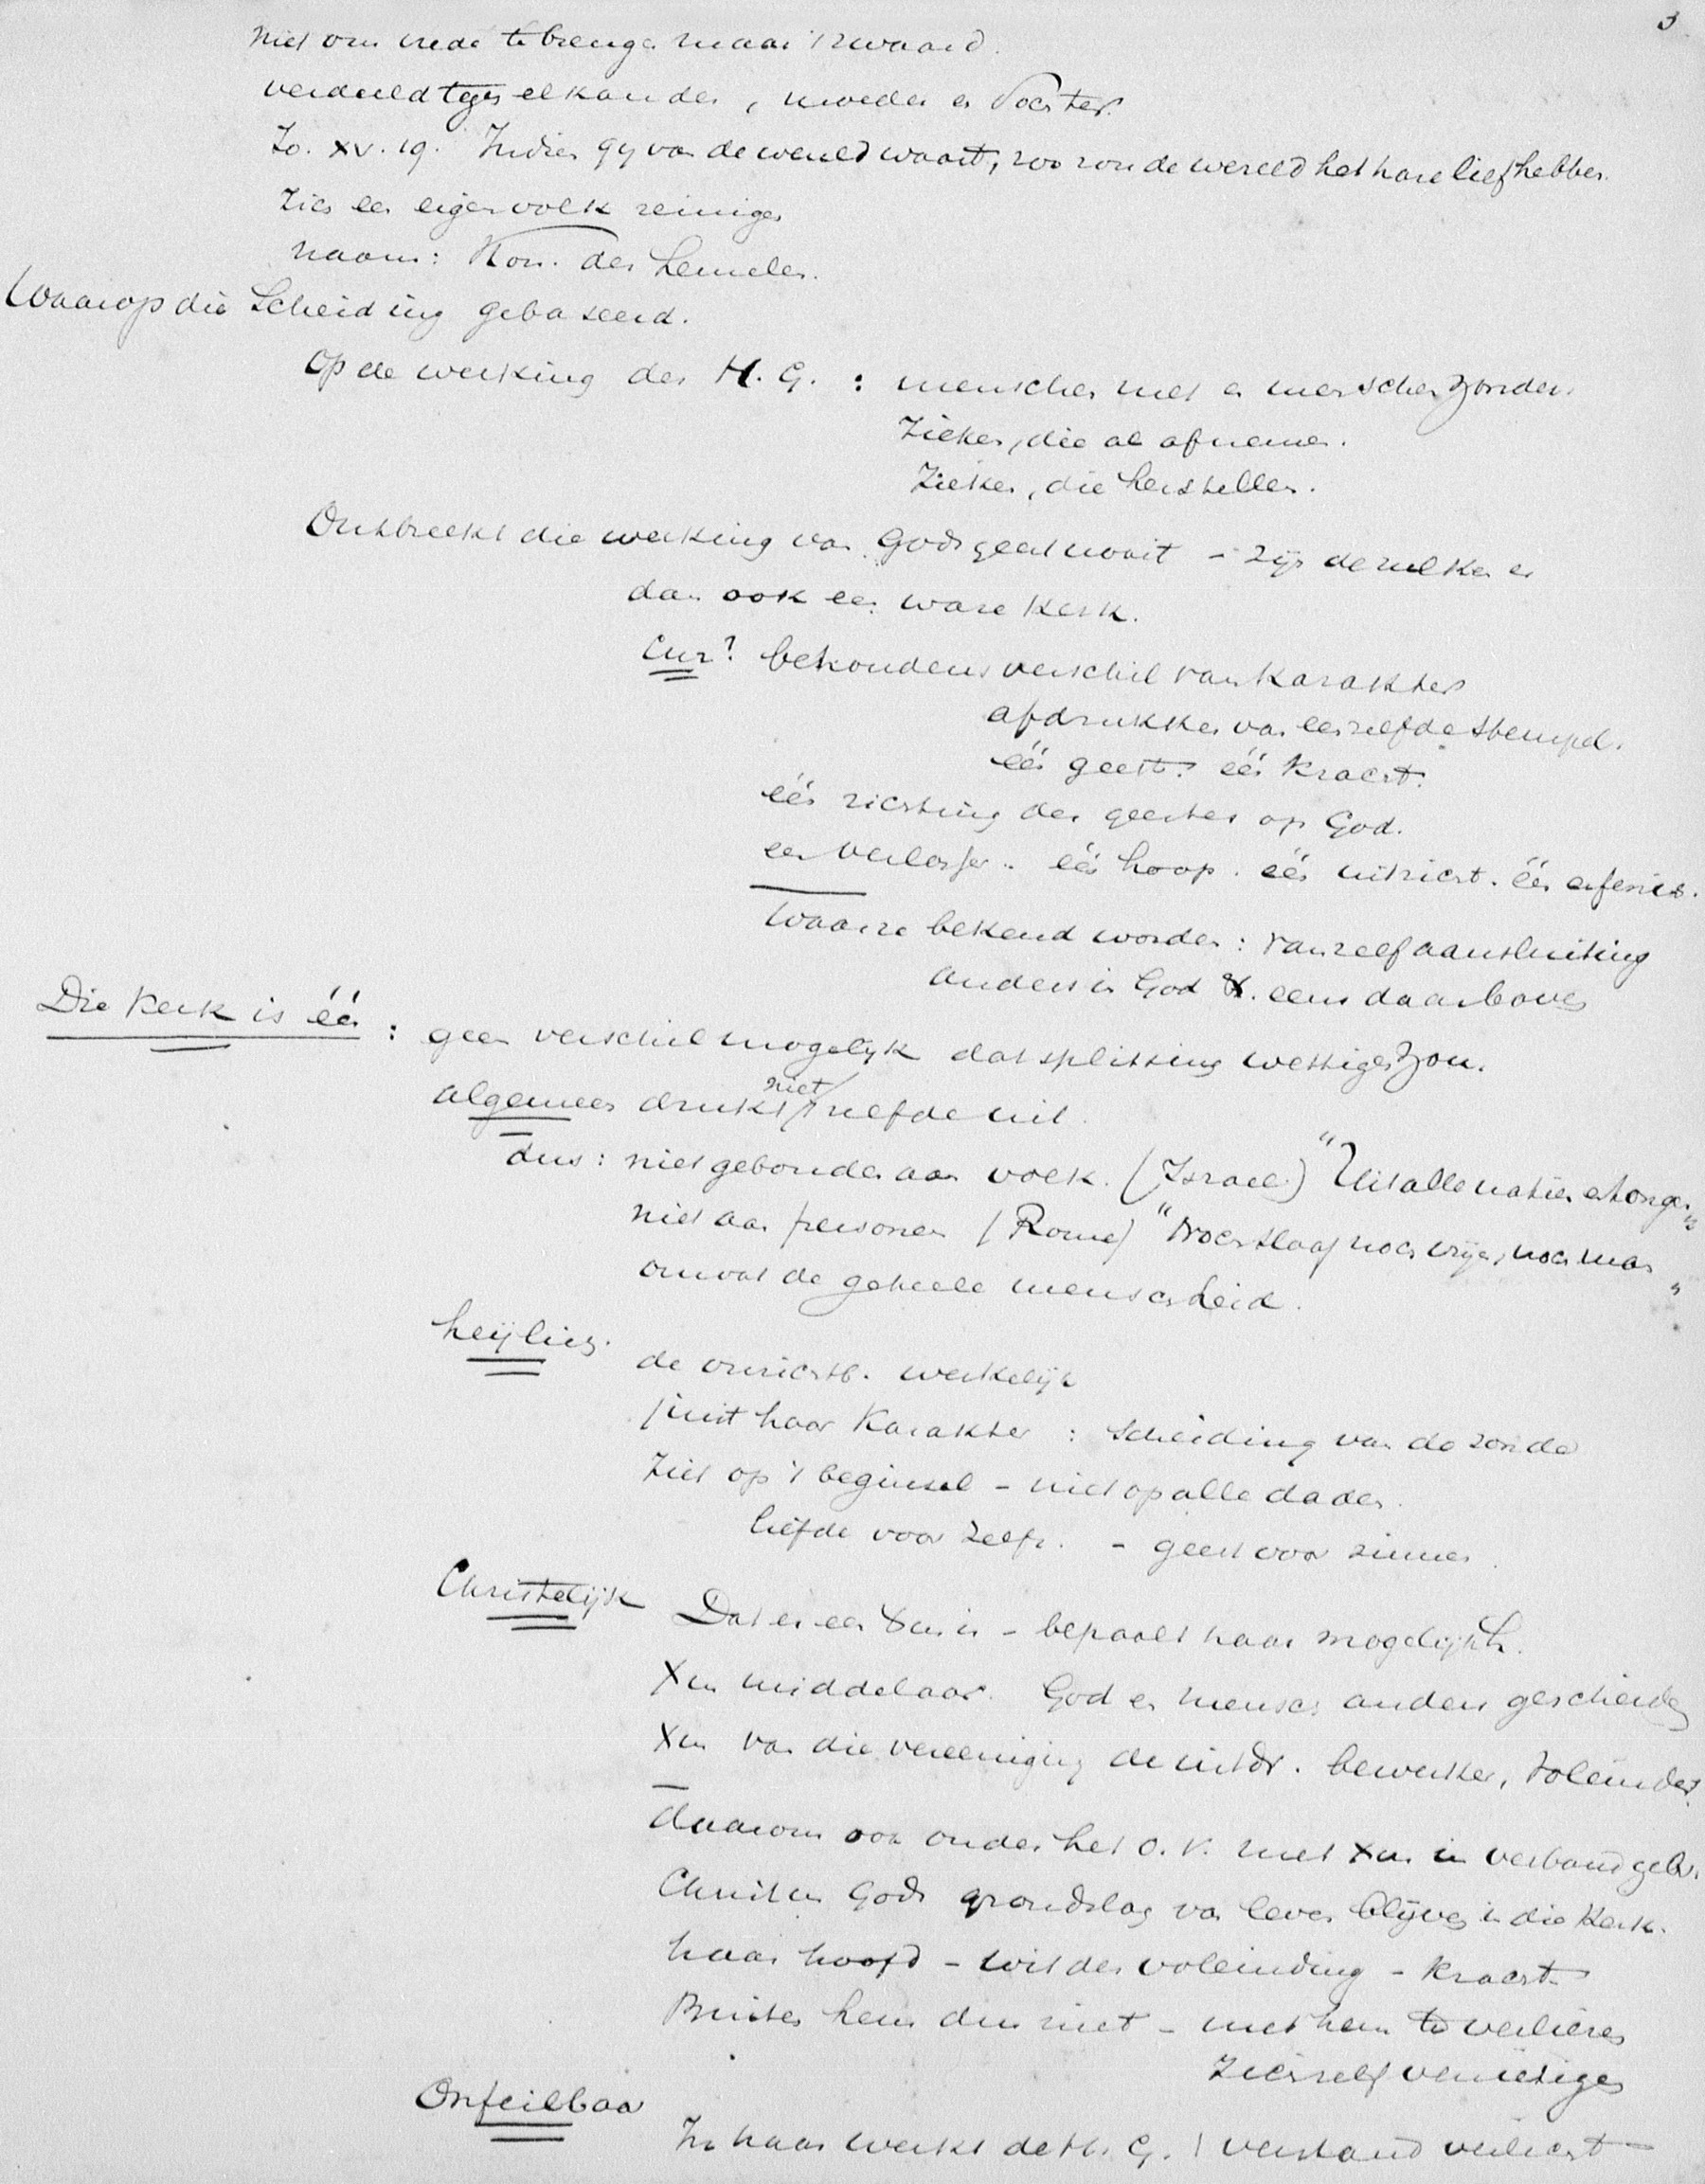 3.
niet om vrede te brengen maar 't zwaard.
verdeeld tegen elkander, moeder en dochter.
Jo. XV. 19. Indien gy van de wereld waart, zoo zou de wereld het hare liefhebben.
Zich een eigen volk reinigen
naam: Kon. der hemelen.
Waarop die scheiding gebaseerd.
Op de werking des H. G. : menschen met en menschen zonder.
Zieken, die al afnemen.
Zieken, die herstellen.
Ontbreekt die werking van Gods geest nooit - zijn dezulken er
dan ook een ware Kerk.
Cur? behoudens verschil van karakter
afdrukken van eenzelfde stempel.
één geest. één kracht.
één richting des geestes op God.
een verlosser. één hoop. één uitzicht. één erfenis.
Waar ze bekend worden: vanzelf aansluiting
anders in God X. eens daarboven
Die Kerk is één : geen verschil mogelyk dat splitsing wettigen zou.
algemeen drukt niet 't zelfde uit.
dus: niet gebonden aan volk. (Israel) "Uit alle natien en tongen"
niet aan personen (Rome) "Noch slaaf noch vrije, noch man"
omvat de geheele menschheid.
heijlig. de onzichtb. werkelijk
juist haar Karakter : scheiding van de zonde
Ziet op 't beginsel - niet op alle daden.
liefde voor zelfz. - geest voor zinnen.
Christelijk Dat er een Xus is - bepaalt haar mogelijkh.
Xus middelaar. God en mensch anders gescheiden
Xus van die vereeniging de uitdr. bewerker, voleinder.
daarom ook onder het O. V. met Xus in verband gebr.
Christus Gods grondslag van leven blijvend in die Kerk.
haar hoofd - wil der voleinding - kracht
Buiten hem dus niet - met hem te verliezen
zichzelf vernietigen
Onfeilbaar
In haar werkt de H. G. 't verstand verlicht -